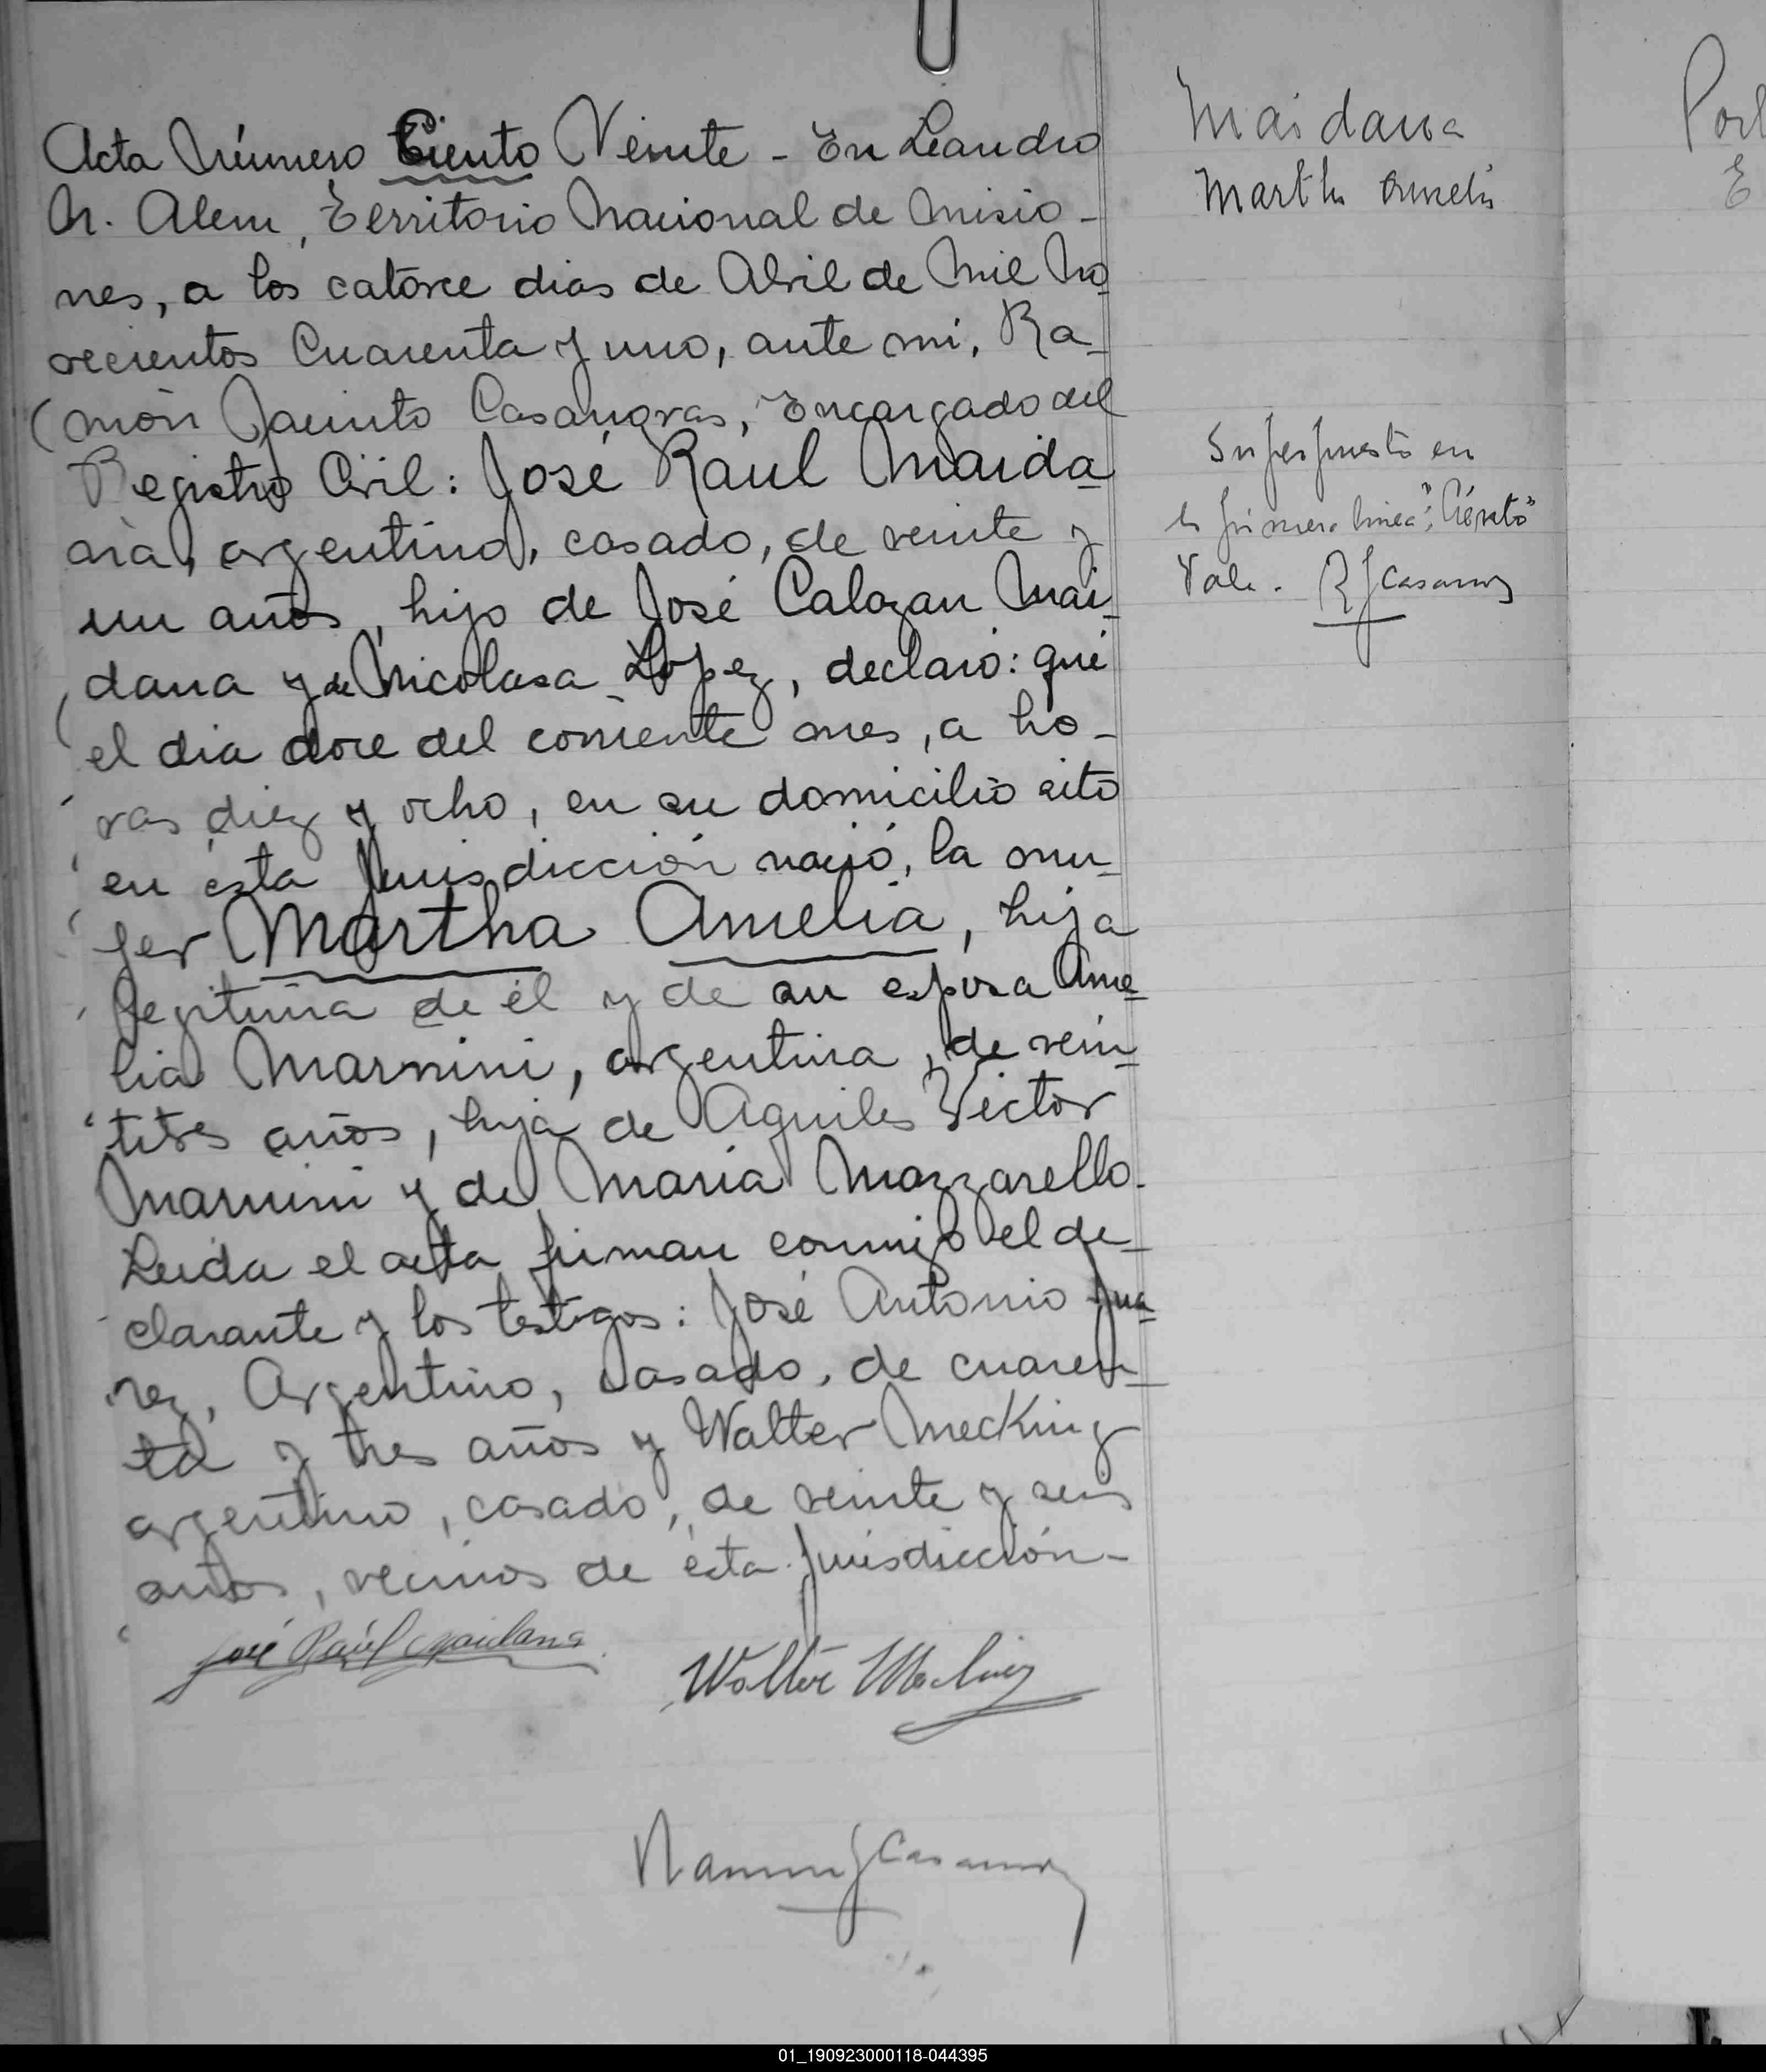 Acta Número Ciento Veinte - En Leandro
N. Alem, Territorio Nacional de Misio-
nes, a los catorce dias de Abril de Mil No
vecientos Cuarenta y uno, ante mi, Ra-
món Jacinto Casanovas, Encargado del
Registro Civil: José Raul Maida
na, argentino, casado, de veinte y
un años, hijo de José Calazan Mai-
dana y de Nicolasa Lopez, declaró: que
el dia doce del corriente mes, a ho-
ras diez y ocho, en su domicilio sito
en ésta Jurisdicción nació, la mu-
jer Martha Amelia, hija
legitima de él y de su esposa Ame-
lia Marnini, argentina, de vein-
titres años, hija de Aquiles Victor
Marnini y de Maria Mazzarello.
Leida el acta firman conmigo el de-
clarante y los testigos: José Antonio Jua-
rez, Argentino, casado, de cuaren-
ta y tres años y Walter Mecking
argentino, casado, de veinte y seis
años, vecinos de ésta Jurisdicción-
José Raúl Maidana
Walter Mecking
Ramon J Casanovas
Maidana
Martha Amelia
Superpuesto en
la primera linea: "Ciento"
Vale. R J Casanovas